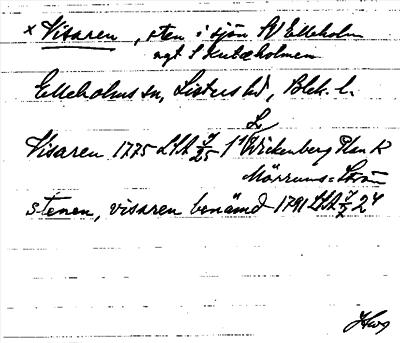 x Visaren, sten i sjön SV Elleholm
ngt S Knutsholmen
Elleholms sn, Listers hd, Blek. l.
Visaren 1775 LSA 7/25 1 Wickenberg Plan K
Mörrums=Ström
stenen, visaren benämd 1791 LSA 7/2 24